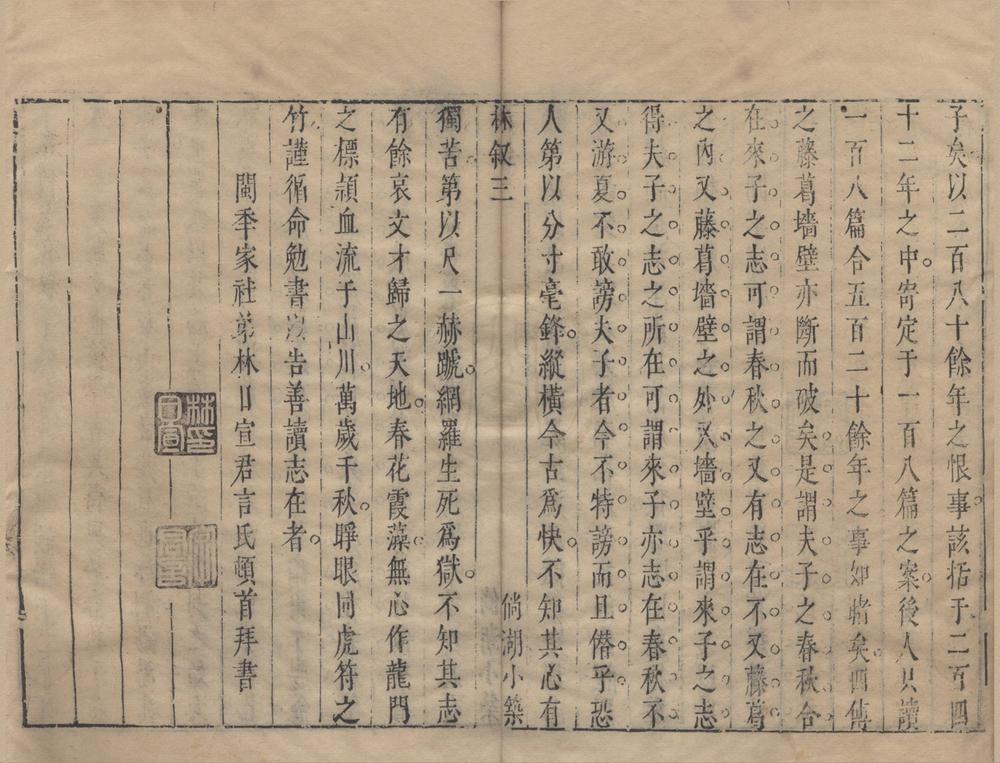 子矣以二百八十餘年之恨事該括于二百四
十二年之中寄定于一百八篇之案後人只讀
一百八篇合五百二十餘年之事如睹矣四傳
之藤葛墻壁亦斷而破矣是謂夫子之春秋合
在來子之志可謂春秋之又有志在不又藤葛
之內又藤葛墻壁之外又墻壁乎謂來子之志
得夫子之志之所在可謂來子亦志在春秋不
又游夏不敢謗夫子者今不特謗而且僭乎恐
人第以分寸毫鋒縱橫今古爲快不知其心有
林叙三
倘湖小築
獨苦第以尺一赫蹏網羅生死爲獄不知其志
有餘哀文才歸之天地春花霞藻無心作龍門
之標潁血流于山川萬歲千秋睜眼同虎符之
竹謹循命勉書以告善讀志在者
閩季家社弟林日宣君言氏頓首拜書
林印
日宣